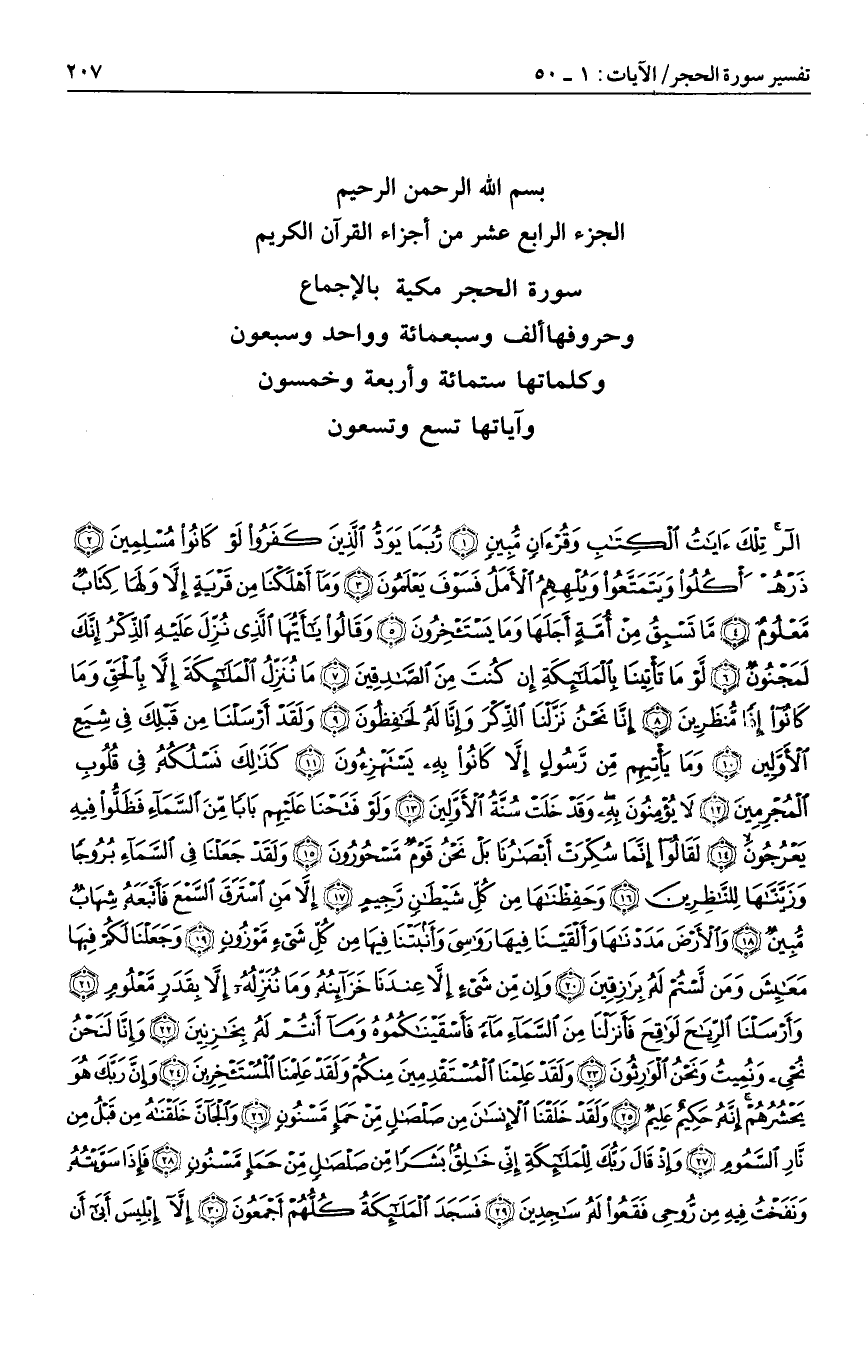 تفسير سورة الحجر/ الآيات: ١ ـ ٥٠ ٢٠٧
بسم الله الرحمن الرحيم
الجزء الرابع عشر من أجزاء القرآن الكريم
سورة الحجر مكية بالإجماع
وحروفهاألف وسبعمائة وواحد وسبعون
وكلماتها ستمائة وأربعة وخمسون
وآياتها تسع وتسعون
الٓرۚ تِلۡكَ ءَايَٰتُ ٱلۡكِتَٰبِ وَقُرۡءَانٖ مُّبِينٖ ١ رُّبَمَا يَوَدُّ ٱلَّذِينَ كَفَرُواْ لَوۡ كَانُواْ مُسۡلِمِينَ ٢
ذَرۡهُمۡ يَأۡكُلُواْ وَيَتَمَتَّعُواْ وَيُلۡهِهِمُ ٱلۡأَمَلُۖ فَسَوۡفَ يَعۡلَمُونَ ٣ وَمَآ أَهۡلَكۡنَا مِن قَرۡيَةٍ إِلَّا وَلَهَا كِتَابٞ
مَّعۡلُومٞ ٤ مَّا تَسۡبِقُ مِنۡ أُمَّةٍ أَجَلَهَا وَمَا يَسۡتَـٔۡخِرُونَ ٥ وَقَالُواْ يَٰٓأَيُّهَا ٱلَّذِي نُزِّلَ عَلَيۡهِ ٱلذِّكۡرُ إِنَّكَ
لَمَجۡنُونٞ ٦ لَّوۡ مَا تَأۡتِينَا بِٱلۡمَلَٰٓئِكَةِ إِن كُنتَ مِنَ ٱلصَّٰدِقِينَ ٧ مَا نُنَزِّلُ ٱلۡمَلَٰٓئِكَةَ إِلَّا بِٱلۡحَقِّ وَمَا
كَانُوٓاْ إِذٗا مُّنظَرِينَ ٨ إِنَّا نَحۡنُ نَزَّلۡنَا ٱلذِّكۡرَ وَإِنَّا لَهُۥ لَحَٰفِظُونَ ٩ وَلَقَدۡ أَرۡسَلۡنَا مِن قَبۡلِكَ فِي شِيَعِ
ٱلۡأَوَّلِينَ ١٠ وَمَا يَأۡتِيهِم مِّن رَّسُولٍ إِلَّا كَانُواْ بِهِۦ يَسۡتَهۡزِءُونَ ١١ كَذَٰلِكَ نَسۡلُكُهُۥ فِي قُلُوبِ
ٱلۡمُجۡرِمِينَ ١٢ لَا يُؤۡمِنُونَ بِهِۦ وَقَدۡ خَلَتۡ سُنَّةُ ٱلۡأَوَّلِينَ ١٣ وَلَوۡ فَتَحۡنَا عَلَيۡهِم بَابٗا مِّنَ ٱلسَّمَآءِ فَظَلُّواْ فِيهِ
يَعۡرُجُونَ ١٤ لَقَالُوٓاْ إِنَّمَا سُكِّرَتۡ أَبۡصَٰرُنَا بَلۡ نَحۡنُ قَوۡمٞ مَّسۡحُورُونَ ١٥ وَلَقَدۡ جَعَلۡنَا فِي ٱلسَّمَآءِ بُرُوجٗا
وَزَيَّنَّٰهَا لِلنَّٰظِرِينَ ١٦ وَحَفِظۡنَٰهَا مِن كُلِّ شَيۡطَٰنٖ رَّجِيمٍ ١٧ إِلَّا مَنِ ٱسۡتَرَقَ ٱلسَّمۡعَ فَأَتۡبَعَهُۥ شِهَابٞ
مُّبِينٞ ١٨ وَٱلۡأَرۡضَ مَدَدۡنَٰهَا وَأَلۡقَيۡنَا فِيهَا رَوَٰسِيَ وَأَنۢبَتۡنَا فِيهَا مِن كُلِّ شَيۡءٖ مَّوۡزُونٖ ١٩ وَجَعَلۡنَا لَكُمۡ فِيهَا
مَعَٰيِشَ وَمَن لَّسۡتُمۡ لَهُۥ بِرَٰزِقِينَ ٢٠ وَإِن مِّن شَيۡءٍ إِلَّا عِندَنَا خَزَآئِنُهُۥ وَمَا نُنَزِّلُهُۥٓ إِلَّا بِقَدَرٖ مَّعۡلُومٖ ٢١
وَأَرۡسَلۡنَا ٱلرِّيَٰحَ لَوَٰقِحَ فَأَنزَلۡنَا مِنَ ٱلسَّمَآءِ مَآءٗ فَأَسۡقَيۡنَٰكُمُوهُ وَمَآ أَنتُمۡ لَهُۥ بِخَٰزِنِينَ ٢٢ وَإِنَّا لَنَحۡنُ
نُحۡيِۦ وَنُمِيتُ وَنَحۡنُ ٱلۡوَٰرِثُونَ ٢٣ وَلَقَدۡ عَلِمۡنَا ٱلۡمُسۡتَقۡدِمِينَ مِنكُمۡ وَلَقَدۡ عَلِمۡنَا ٱلۡمُسۡتَـٔۡخِرِينَ ٢٤ وَإِنَّ رَبَّكَ هُوَ
يَحۡشُرُهُمۡۚ إِنَّهُۥ حَكِيمٌ عَلِيمٞ ٢٥ وَلَقَدۡ خَلَقۡنَا ٱلۡإِنسَٰنَ مِن صَلۡصَٰلٖ مِّنۡ حَمَإٖ مَّسۡنُونٖ ٢٦ وَٱلۡجَآنَّ خَلَقۡنَٰهُ مِن قَبۡلُ مِن
نَّارِ ٱلسَّمُومِ ٢٧ وَإِذۡ قَالَ رَبُّكَ لِلۡمَلَٰٓئِكَةِ إِنِّي خَٰلِقُۢ بَشَرٗا مِّن صَلۡصَٰلٖ مِّنۡ حَمَإٖ مَّسۡنُونٖ ٢٨ فَإِذَا سَوَّيۡتُهُۥ
وَنَفَخۡتُ فِيهِ مِن رُّوحِي فَقَعُواْ لَهُۥ سَٰجِدِينَ ٢٩ فَسَجَدَ ٱلۡمَلَٰٓئِكَةُ كُلُّهُمۡ أَجۡمَعُونَ ٣٠ إِلَّآ إِبۡلِيسَ أَبَىٰٓ أَن